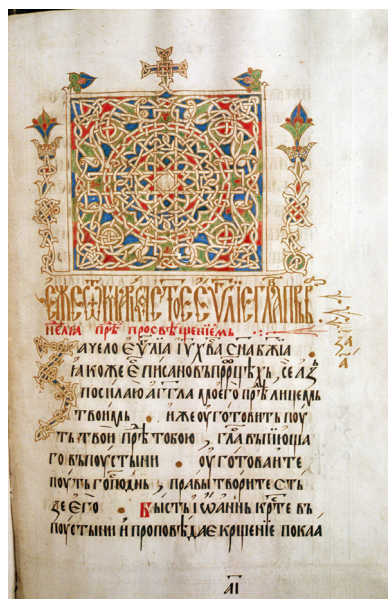 недѣлꙗ прѣ просвѣщенїемь
Зачело еѵⷢ҇лїа іѵ҃ х҃ва сн҃а бж҃їа
ꙗкоже е҆ писано въ прⷪ҇рцѣхъ, се аꙁ
посилаю аг҃гла моего прѣⷣ лицемь
твоимь иже оуготовить поу
ть твои прѣⷣ тобою, гла въпїюща
го въ поустыни оуготоваите
поуть гⷭ҇подⷩ҇ь, правы творите стъ
ꙁе е҆го бысть іѡаннь крⷭ҇те въ
поустыни и҆ проповѣдае крщенїе покаа
а҃і